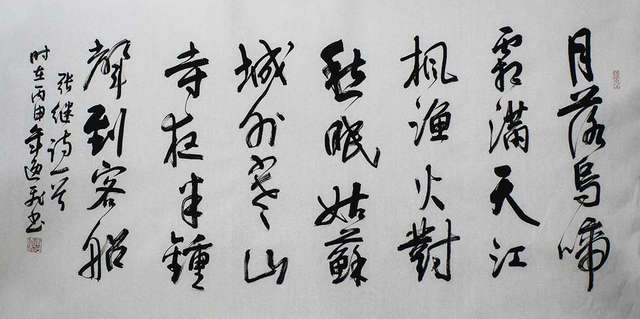 月落烏啼
霜滿天江
楓漁火對
愁眠姑蘇
城外寒山
寺夜半鐘
聲到客船
张继诗一首
时在丙申年